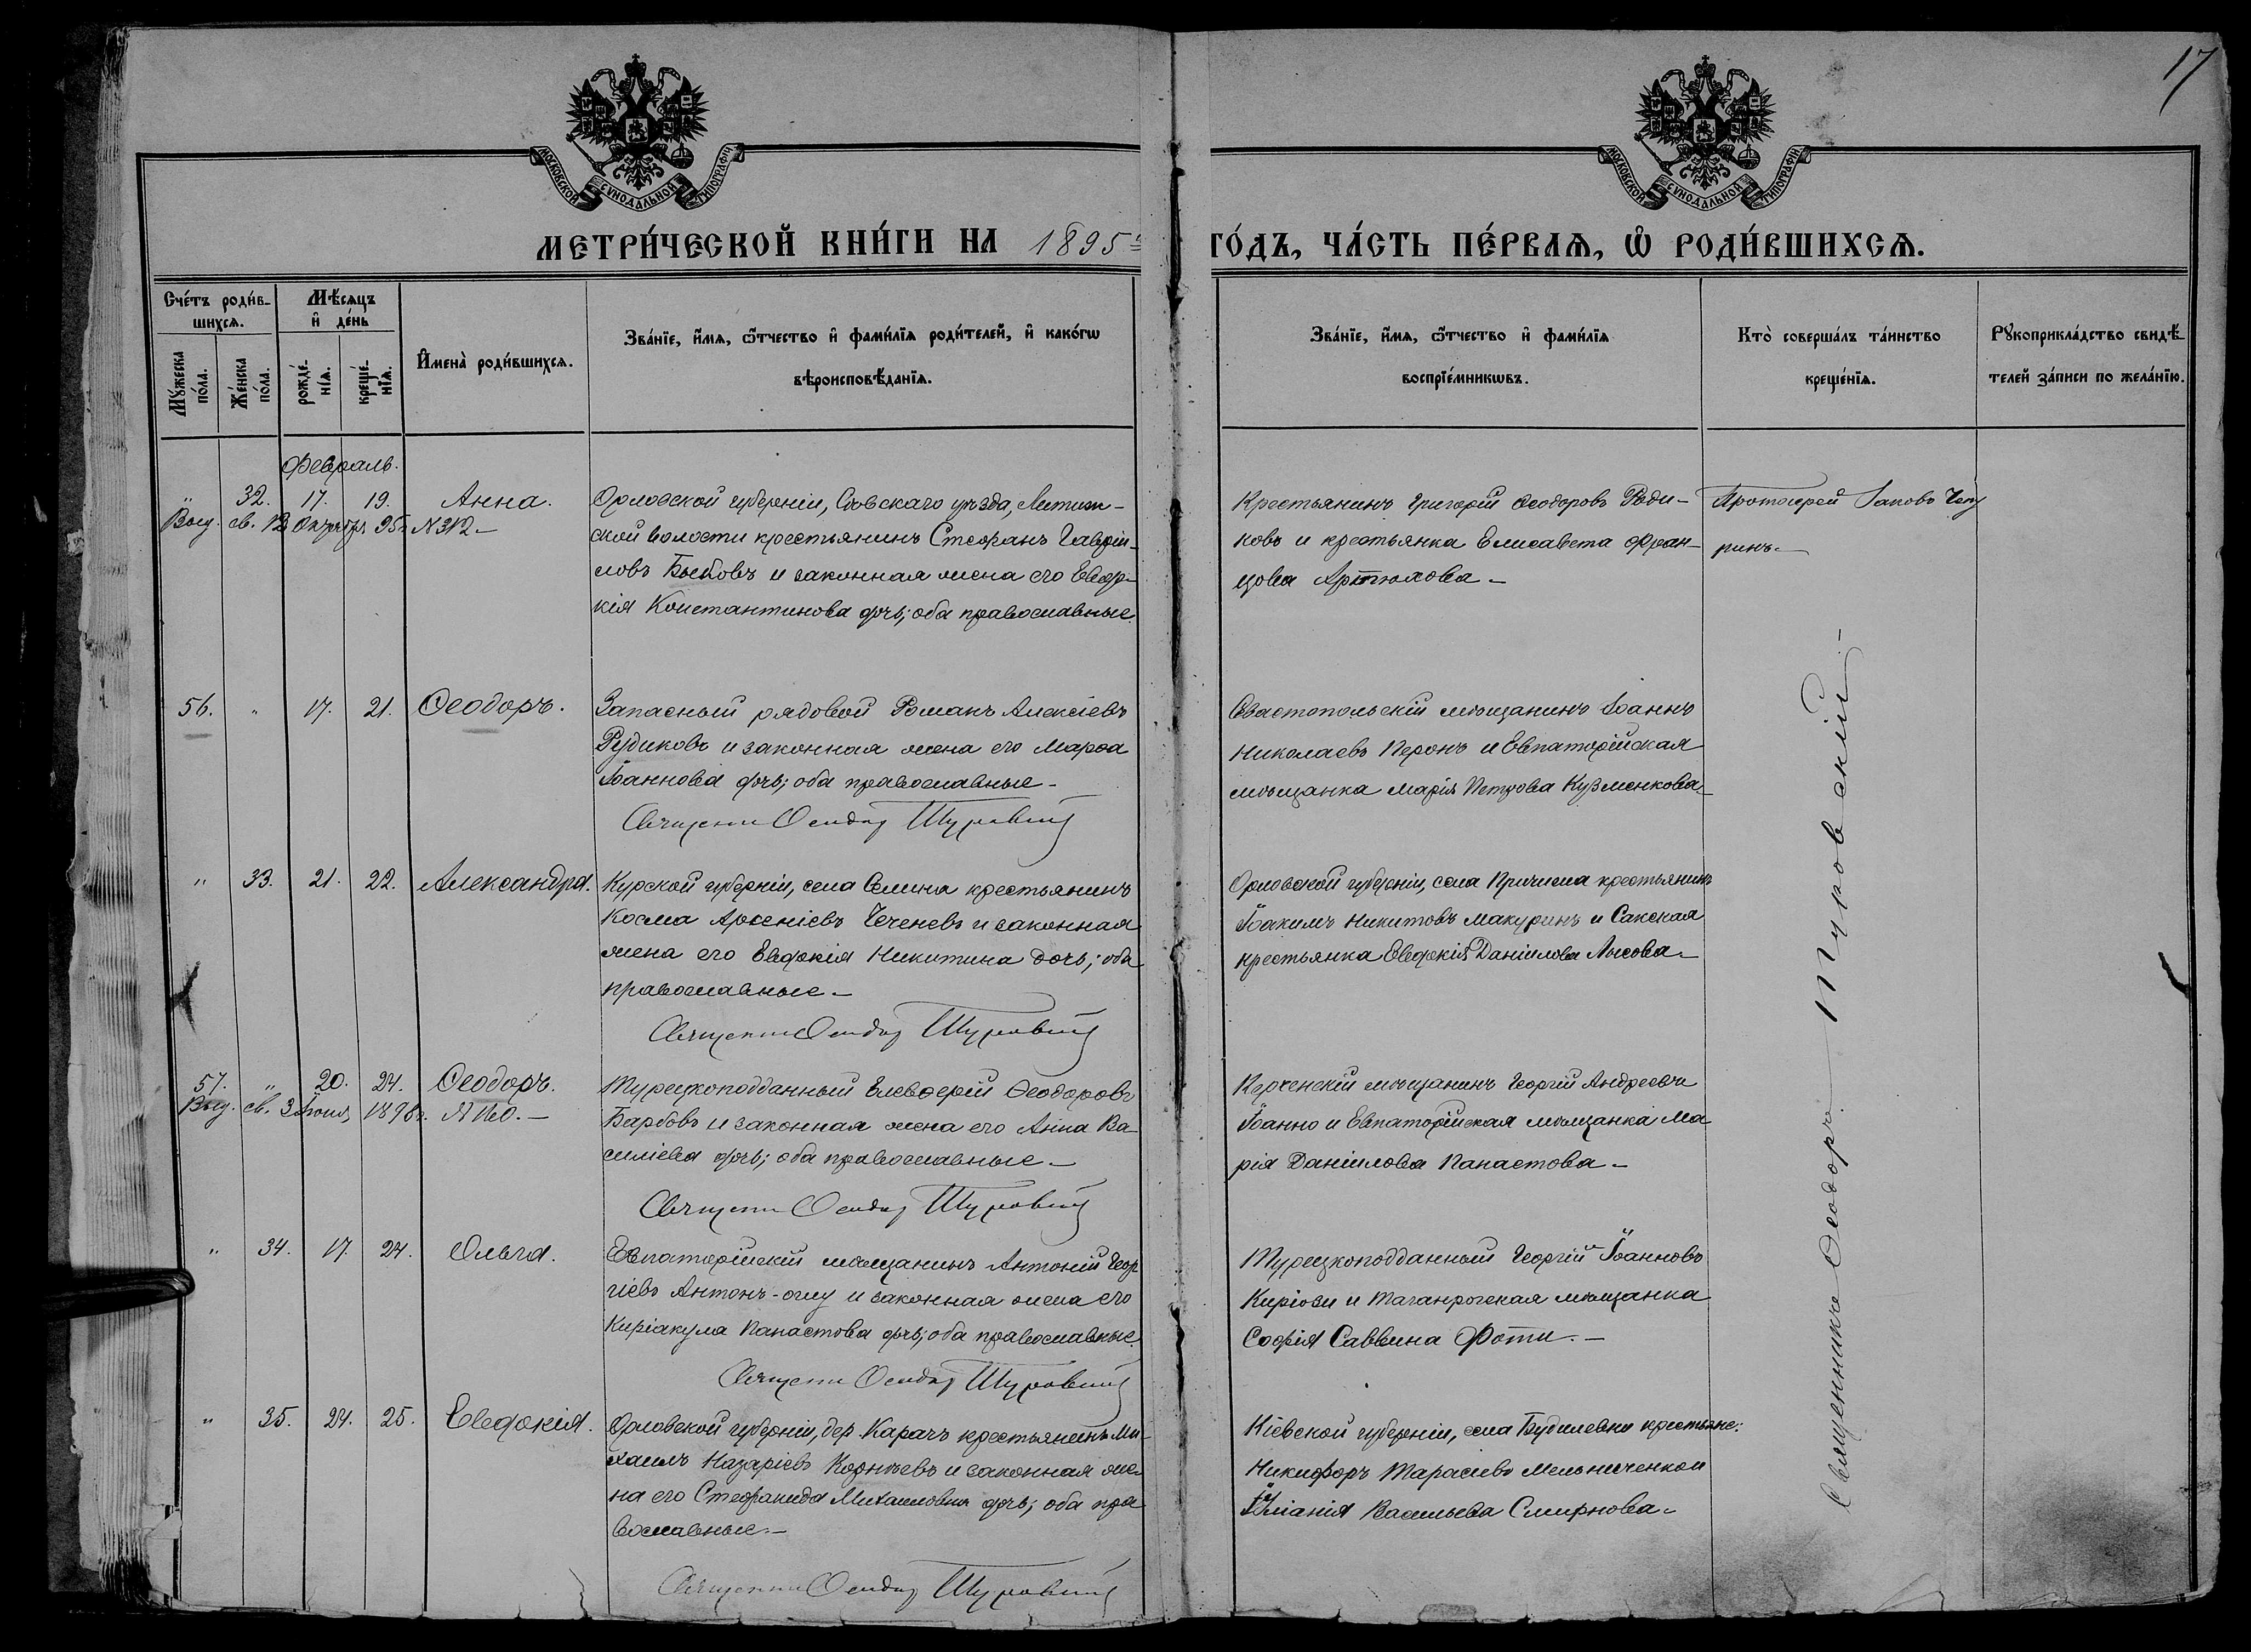 17
МОСКОВСКОЙ СѴНОДАЛЬНОЙ ТИПОГРАФІИ
МОСКОВСКОЙ СѴНОДАЛЬНОЙ ТИПОГРАФІИ
МЕТРИ́ЧЕСКОЙ КНИ́ГИ НА 1895
ГО́ДЪ, ЧА́СТЬ ПЕ́РВАѦ, Ѽ РОДИ́ВШИХСѦ.
Сче́тъ роди́в-
шихсѧ.
Мꙋ́жеска по́ла.
Же́нска по́ла.
Мѣ́сѧцъ
и҆ де́нь
рожде́-
нїѧ.
креще́-
нїѧ.
И҆мена̀ роди́вшихсѧ.
Зва́нїе, и҆́мѧ, ѻ҆́тчество и҆ фами́лїѧ роди́телей, и҆ како́гѡ
вѣроисповѣ́данїѧ.
Зва́нїе, и҆́мѧ, ѻ҆́тчество и҆ фами́лїѧ
воспрїе́мникѡвъ.
Кто̀ соверша́лъ та́инство
креще́нїѧ.
Рꙋкоприкла́дство свидѣ́-
телей за́писи по жела́нїю.
Февраль.
" 32. 17. 19. Анна.
Выд. св. 12 Октября 95 г. N 312 -
Орловской губерніи, Сѣвскаго уѣзда, Литиж-
ской волости крестьянинъ Стефанъ Гавріи-
ловъ Быковъ и законная жена его Евдо-
кія Константинова дочь; оба православные.
Крестьянинъ Григорій Ѳеодоровъ Роди-
ковъ и крестьянка Елисавета Фран-
цова Артюхова -
Протоіерей Іаковъ Чепу
ринъ. -
56. " 17. 21. Ѳеодоръ.
Запасный рядовой Романъ Алексіевъ
Рудиковъ и законная жена его Марѳа
Іоаннова дочь; оба православные -
Священн Ѳеодор Шуровскій
Севастопольскій мѣщанинъ Іоаннъ
Николаевъ Перонъ и Евпаторійская
мѣщанка Марія Петрова Кузменкова. -
" 33. 21. 22. Александра.
Курской губерніи, села Семина крестьянинъ
Косма Арсеніевъ Чеченевъ и законная
жена его Евдокія Никитина дочь; оба
православные. -
Священн Ѳеодор Шуровскій
Орловской губерніи, села Причисла крестьянинъ
Іоакимъ Никитовъ Макуринъ и Сакская
крестьянка Евдокія Даніилова Лысова -
57. " 20. 24. Ѳеодоръ.
Выд. св. 3 1898 г. N 160. -
Турецкоподданный Елевѳерій Ѳеодоровъ
Барбовъ и законная жена его Анна Ва-
силіева дочь; оба православные -
Священн Ѳеодор Шуровскій
Керченскій мѣщанинъ Георгій Андреевъ
Іоанно и Евпаторійская мѣщанка Ма
рія Даніилова Панастова -
" 34. 17. 24. Ольга.
Евпаторійскій мѣщанинъ Антоній Геор
гіевъ Антонъ-оглу и законная жена его
Киріакула Панастова дочь; оба православные.
Священн Ѳеодор Шуровскій
Турецкоподданный Георгій Іоанновъ
Киріози и Таганрогская мѣщанка
Софія Саввина Фоти. -
" 35. 24. 25. Евдокія.
Орловской губерніи, дер. Карачъ крестьянинъ Ми-
хаилъ Назаріевъ Корнѣевъ и законная же-
на его Стефанида Михаиловна дочь; оба пра
вославные. -
Священн Ѳеодор Шуровскій
Кіевской губерніи, села крестьяне:
Никифоръ Тарасіевъ Мельниченко и
Іуліанія Васильева Смирнова -
Священникъ Ѳеодоръ Шуровскій -